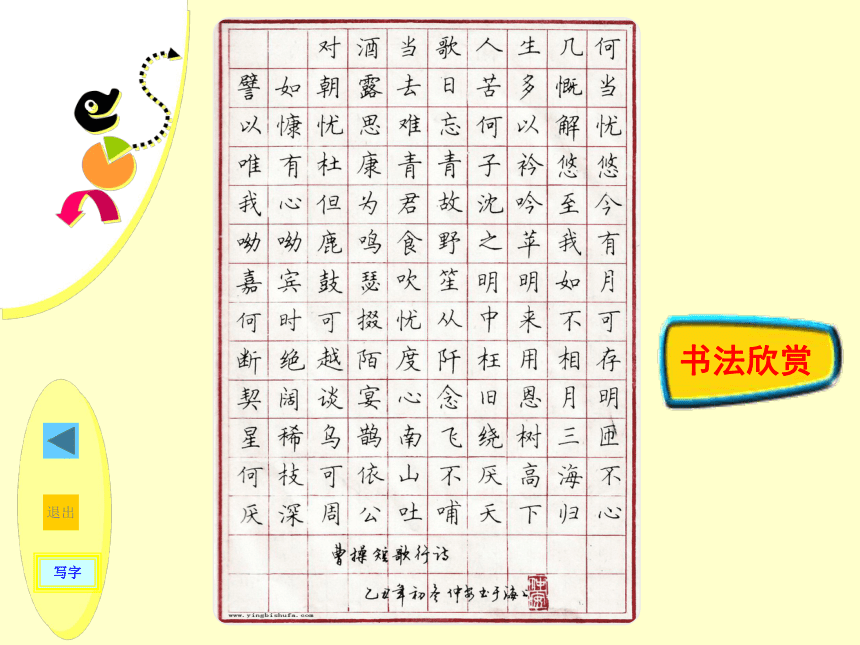 对酒当歌人生几何
譬如朝露去日苦多慨当
以慷忧思难忘何以解忧
唯有杜康青青子衿悠悠
我心但为君故沈吟至今
呦呦鹿鸣食野之苹我有
嘉宾鼓瑟吹笙明明如月
何时可掇忧从中来不可
断绝越陌度阡枉用相存
契阔谈宴心念旧恩月明
星稀乌鹊南飞绕树三匝
何枝可依山不厌高海不
厌深周公吐哺天下归心
曹操短歌行诗
乙丑年初冬仲安书于海上
www.yingbishufa.com
书法欣赏
退出
写字